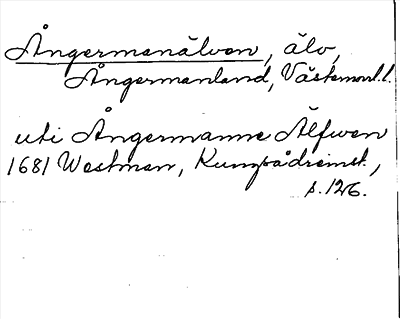 Ångermanälven, älv,
Ångermanland, Västernorrl.l.
uti Ångermanne Älfwen
1681 Westman, Kungsådreinst.,
s.126.